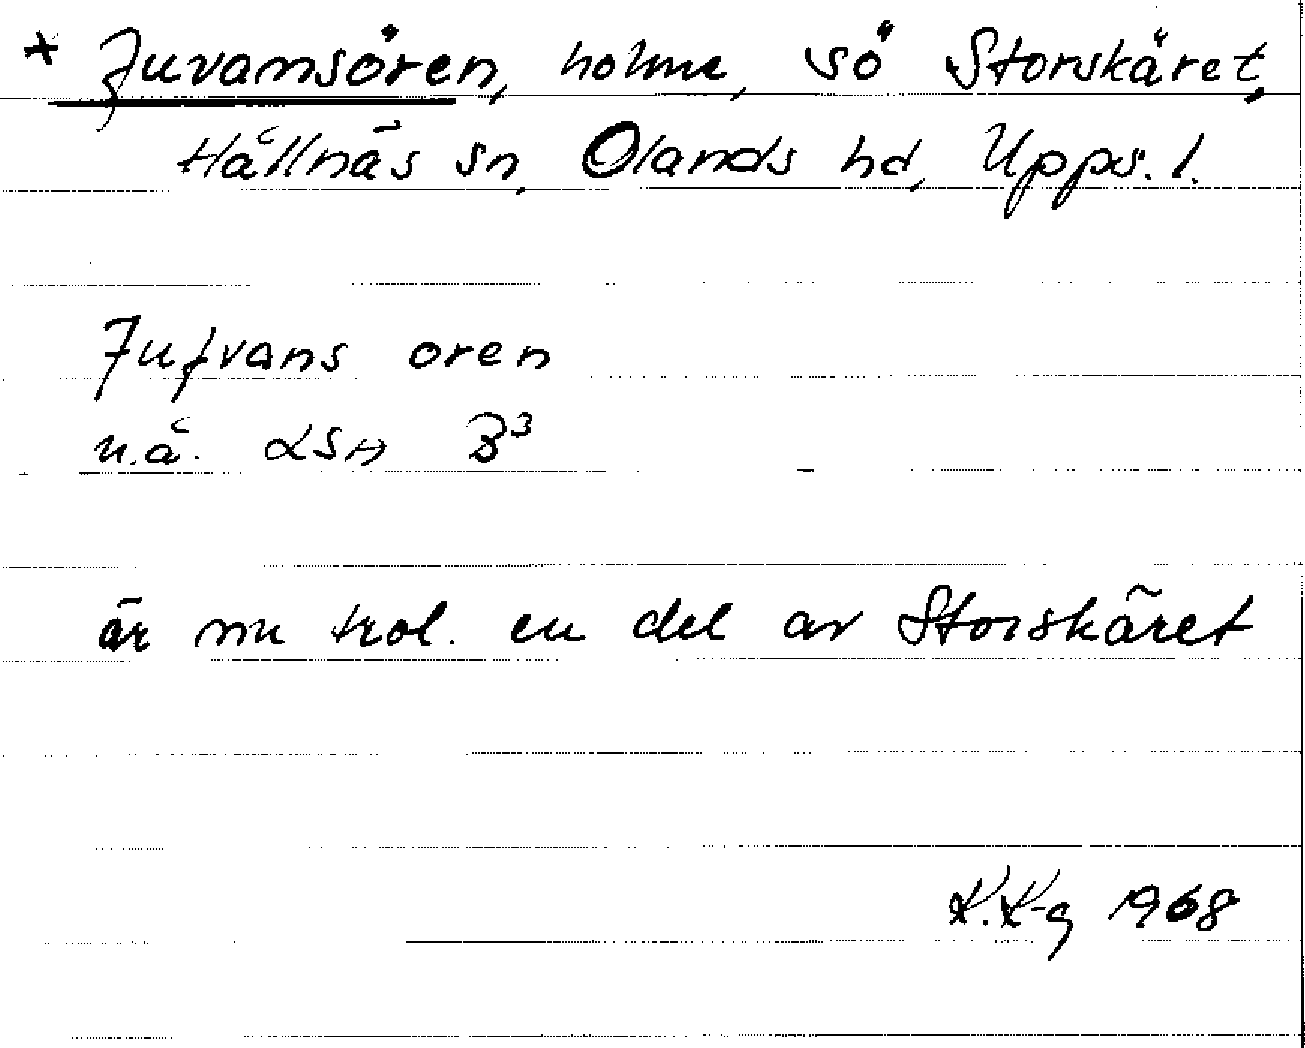 * Juvansören, holme, sö Storskäret,
Hållnäs sn, Olands hd, Upps. l.
Jufvans oren
n.ä. LSA B3
är nu trol. en del av Storskäret
K.K-g 1968